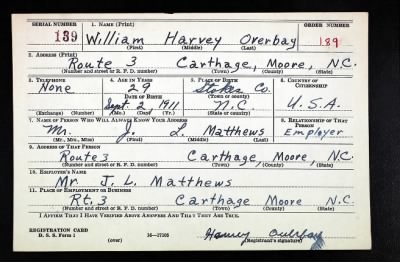 SERIAL NUMBER 1. NAME (Print) ORDER NUMBER
139 William Harvey Overbay 189
(First) (Middle) (Last)
2. ADDRESS (Print)
Route 3 Carthage, Moore, N.C.
(Number and street or R. F. D. number) (Town) (County) (State)
3. TELEPHONE 4. AGE IN YEARS 5. PLACE OF BIRTH 6. COUNTRY OF CITIZENSHIP
None 29 Stokes Co.
DATE OF BIRTH (Town or county)
Sept. 2, 1911 N.C. U.S.A.
(Exchange) (Number) (Mo.) (Day) (Yr.) (State or country)
7. NAME OF PERSON WHO WILL ALWAYS KNOW YOUR ADDRESS 8. RELATIONSHIP OF THAT PERSON
Mr. J. L. Matthews Employer
(Mr., Mrs., Miss) (First) (Middle) (Last)
9. ADDRESS OF THAT PERSON
Route 3 Carthage, Moore, N.C.
(Number and street or R. F. D. number) (Town) (County) (State)
10. EMPLOYER'S NAME
Mr. J. L. Matthews
11. PLACE OF EMPLOYMENT OR BUSINESS
Rt. 3 Carthage Moore N.C.
(Number and street or R. F. D. number) (Town) (County) (State)
I AFFIRM THAT I HAVE VERIFIED ABOVE ANSWERS AND THAT THEY ARE TRUE.
REGISTRATION CARD
D. S. S. Form 1 16—17105 Harvey Overbay
(over) (Registrant's signature)